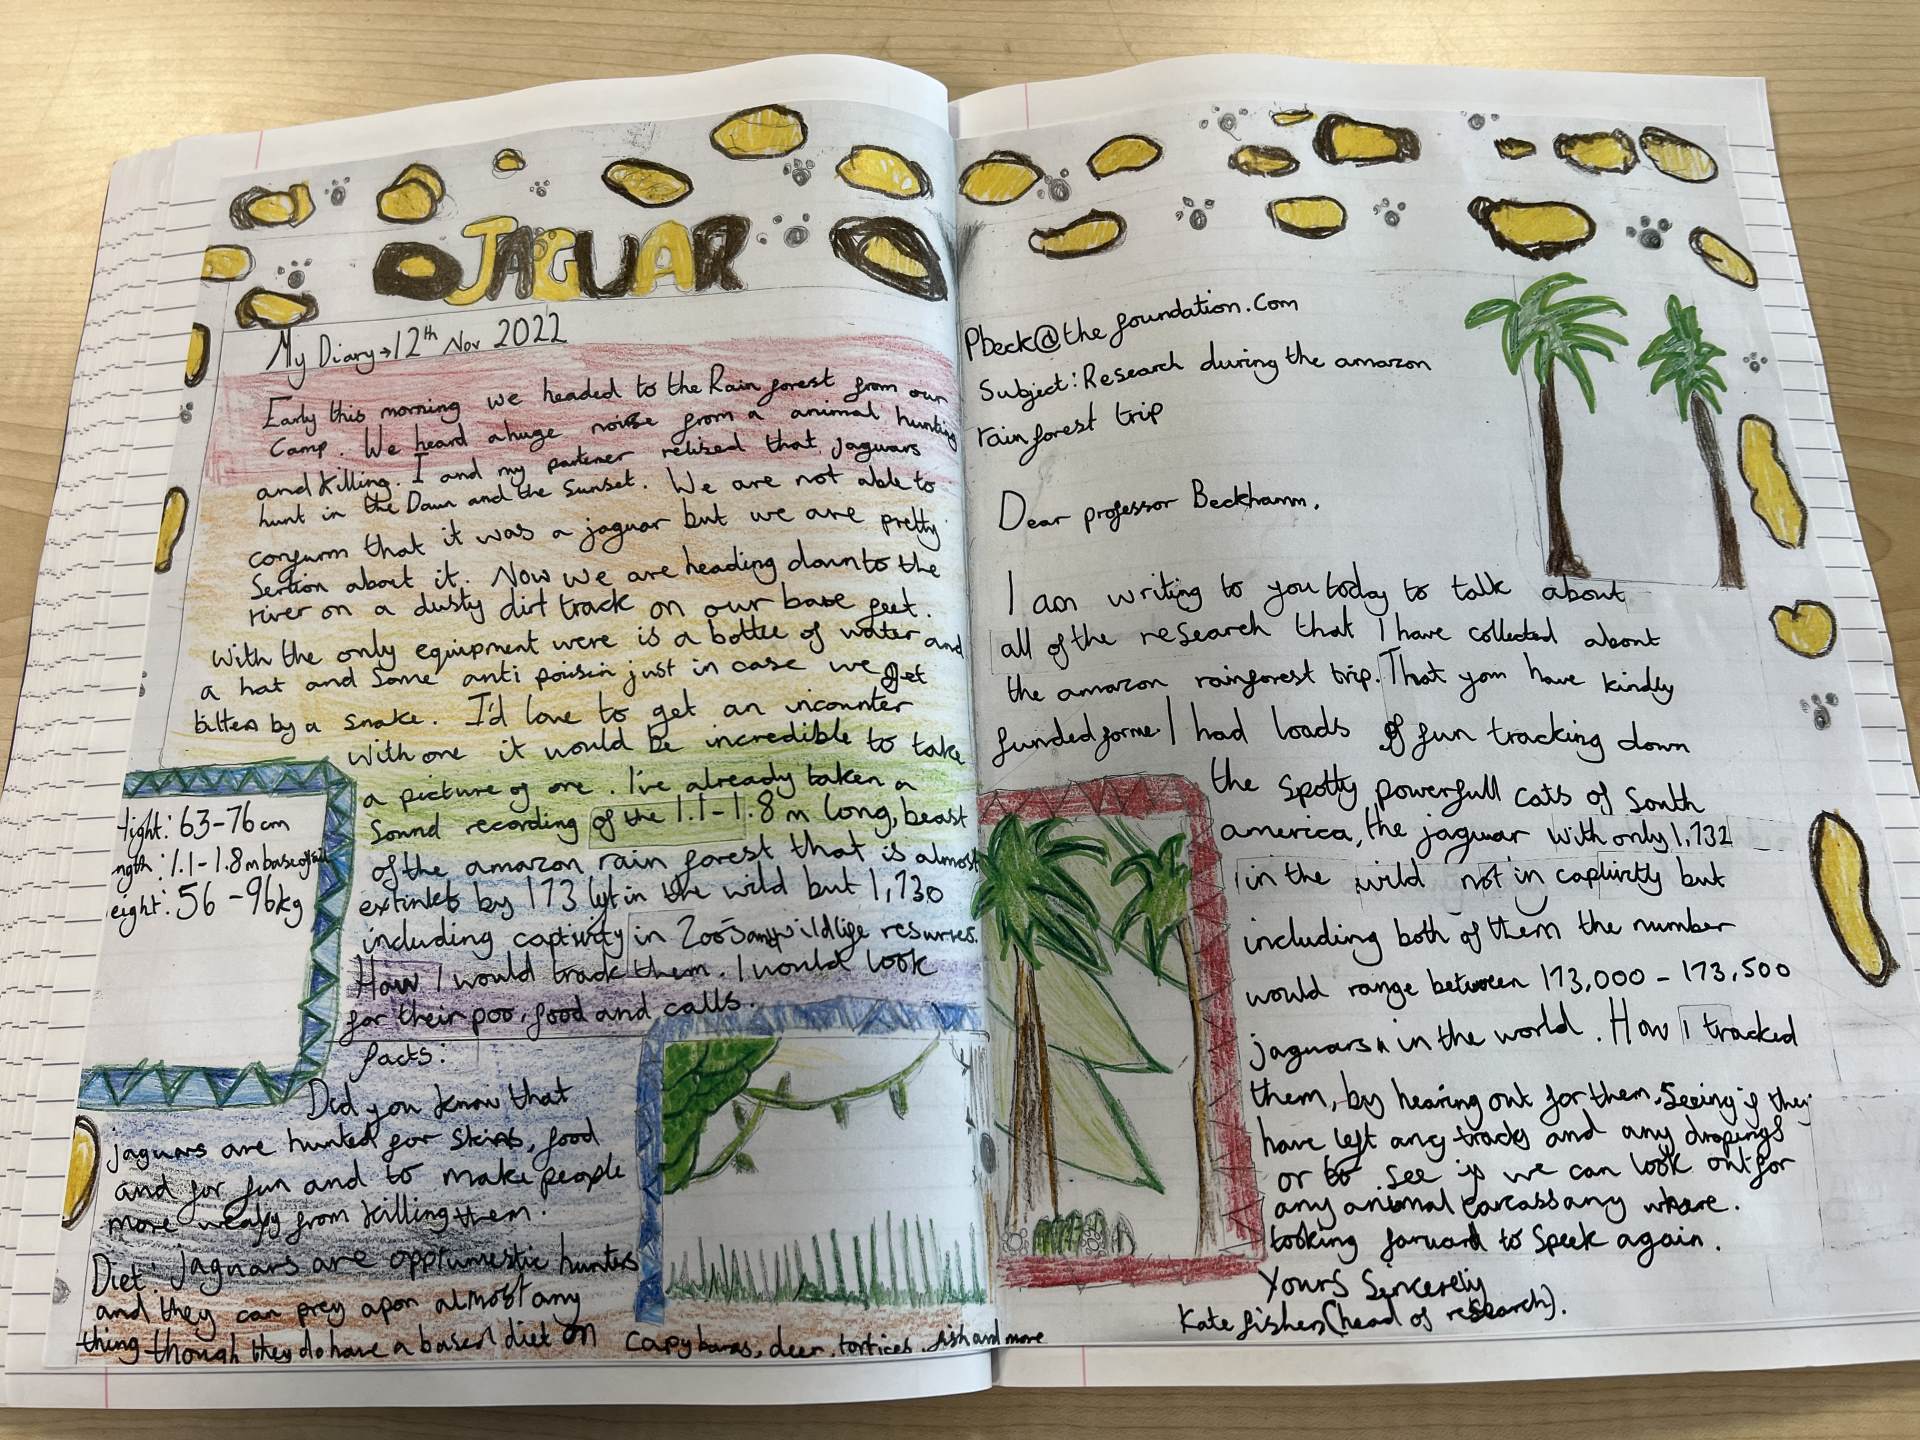 JAGUAR
My Diary → 12th Nov 2022
Early this morning we headed to the Rain forest from our
Camp. We heard a huge noise from a animal hunting
and killing. I and my partener relised that jaguars
hunt in the Dawn and the Sunset. We are not able to
confurm that it was a jaguar but we are pretty
Sertion about it. Now we are heading down to the
river on a dusty dirt track on our base feet.
With the only equipment were is a bottle of water and
a hat and Some anti poisin just in case we get
bitten by a snake. I'd love to get an incounter
with one it would be incredible to take
a picture of one. I've already taken a
Sound recording of the 1.1-1.8 m long, beast
of the amazon rain forest that is almost
extinkts by 173 left in the wild but 1,730
including captivity in Zoos any wildlife resurves.
How I would track them. I would look
for their poo, food and calls.
Hight: 63-76cm
ngth: 1.1-1.8m base of tail
eight: 56-96kg
facts:
Did you know that
jaguars are hunted for skins, food
and for fun and to make people
more wealfy from killing them.
Diet: jaguars are opptumestic hunters
and they can prey apon almost any
thing though they do have a based diet on capybaras, deer, tortices, fish and more
Pbeck@the foundation.Com
Subject: Research during the amazon
rain forest trip
Dear professor Beckhamm,
I am writing to you today to talk about
all of the research that I have collected about
the amazon rainforest trip. That you have kindly
funded for me. I had loads of fun tracking down
the spotty powerfull cats of South
america, the jaguar with only 1,732
in the wild not in captivity but
including both of them the number
would range between 173,000 - 173,500
jaguars in the world. How I tracked
them, by hearing out for them, Seeing if they
have left any tracks and any dropings
or to see if we can look out for
any animal carcass any where.
Looking forward to Speek again.
Yours Sincerely
Kate fishers (head of research).